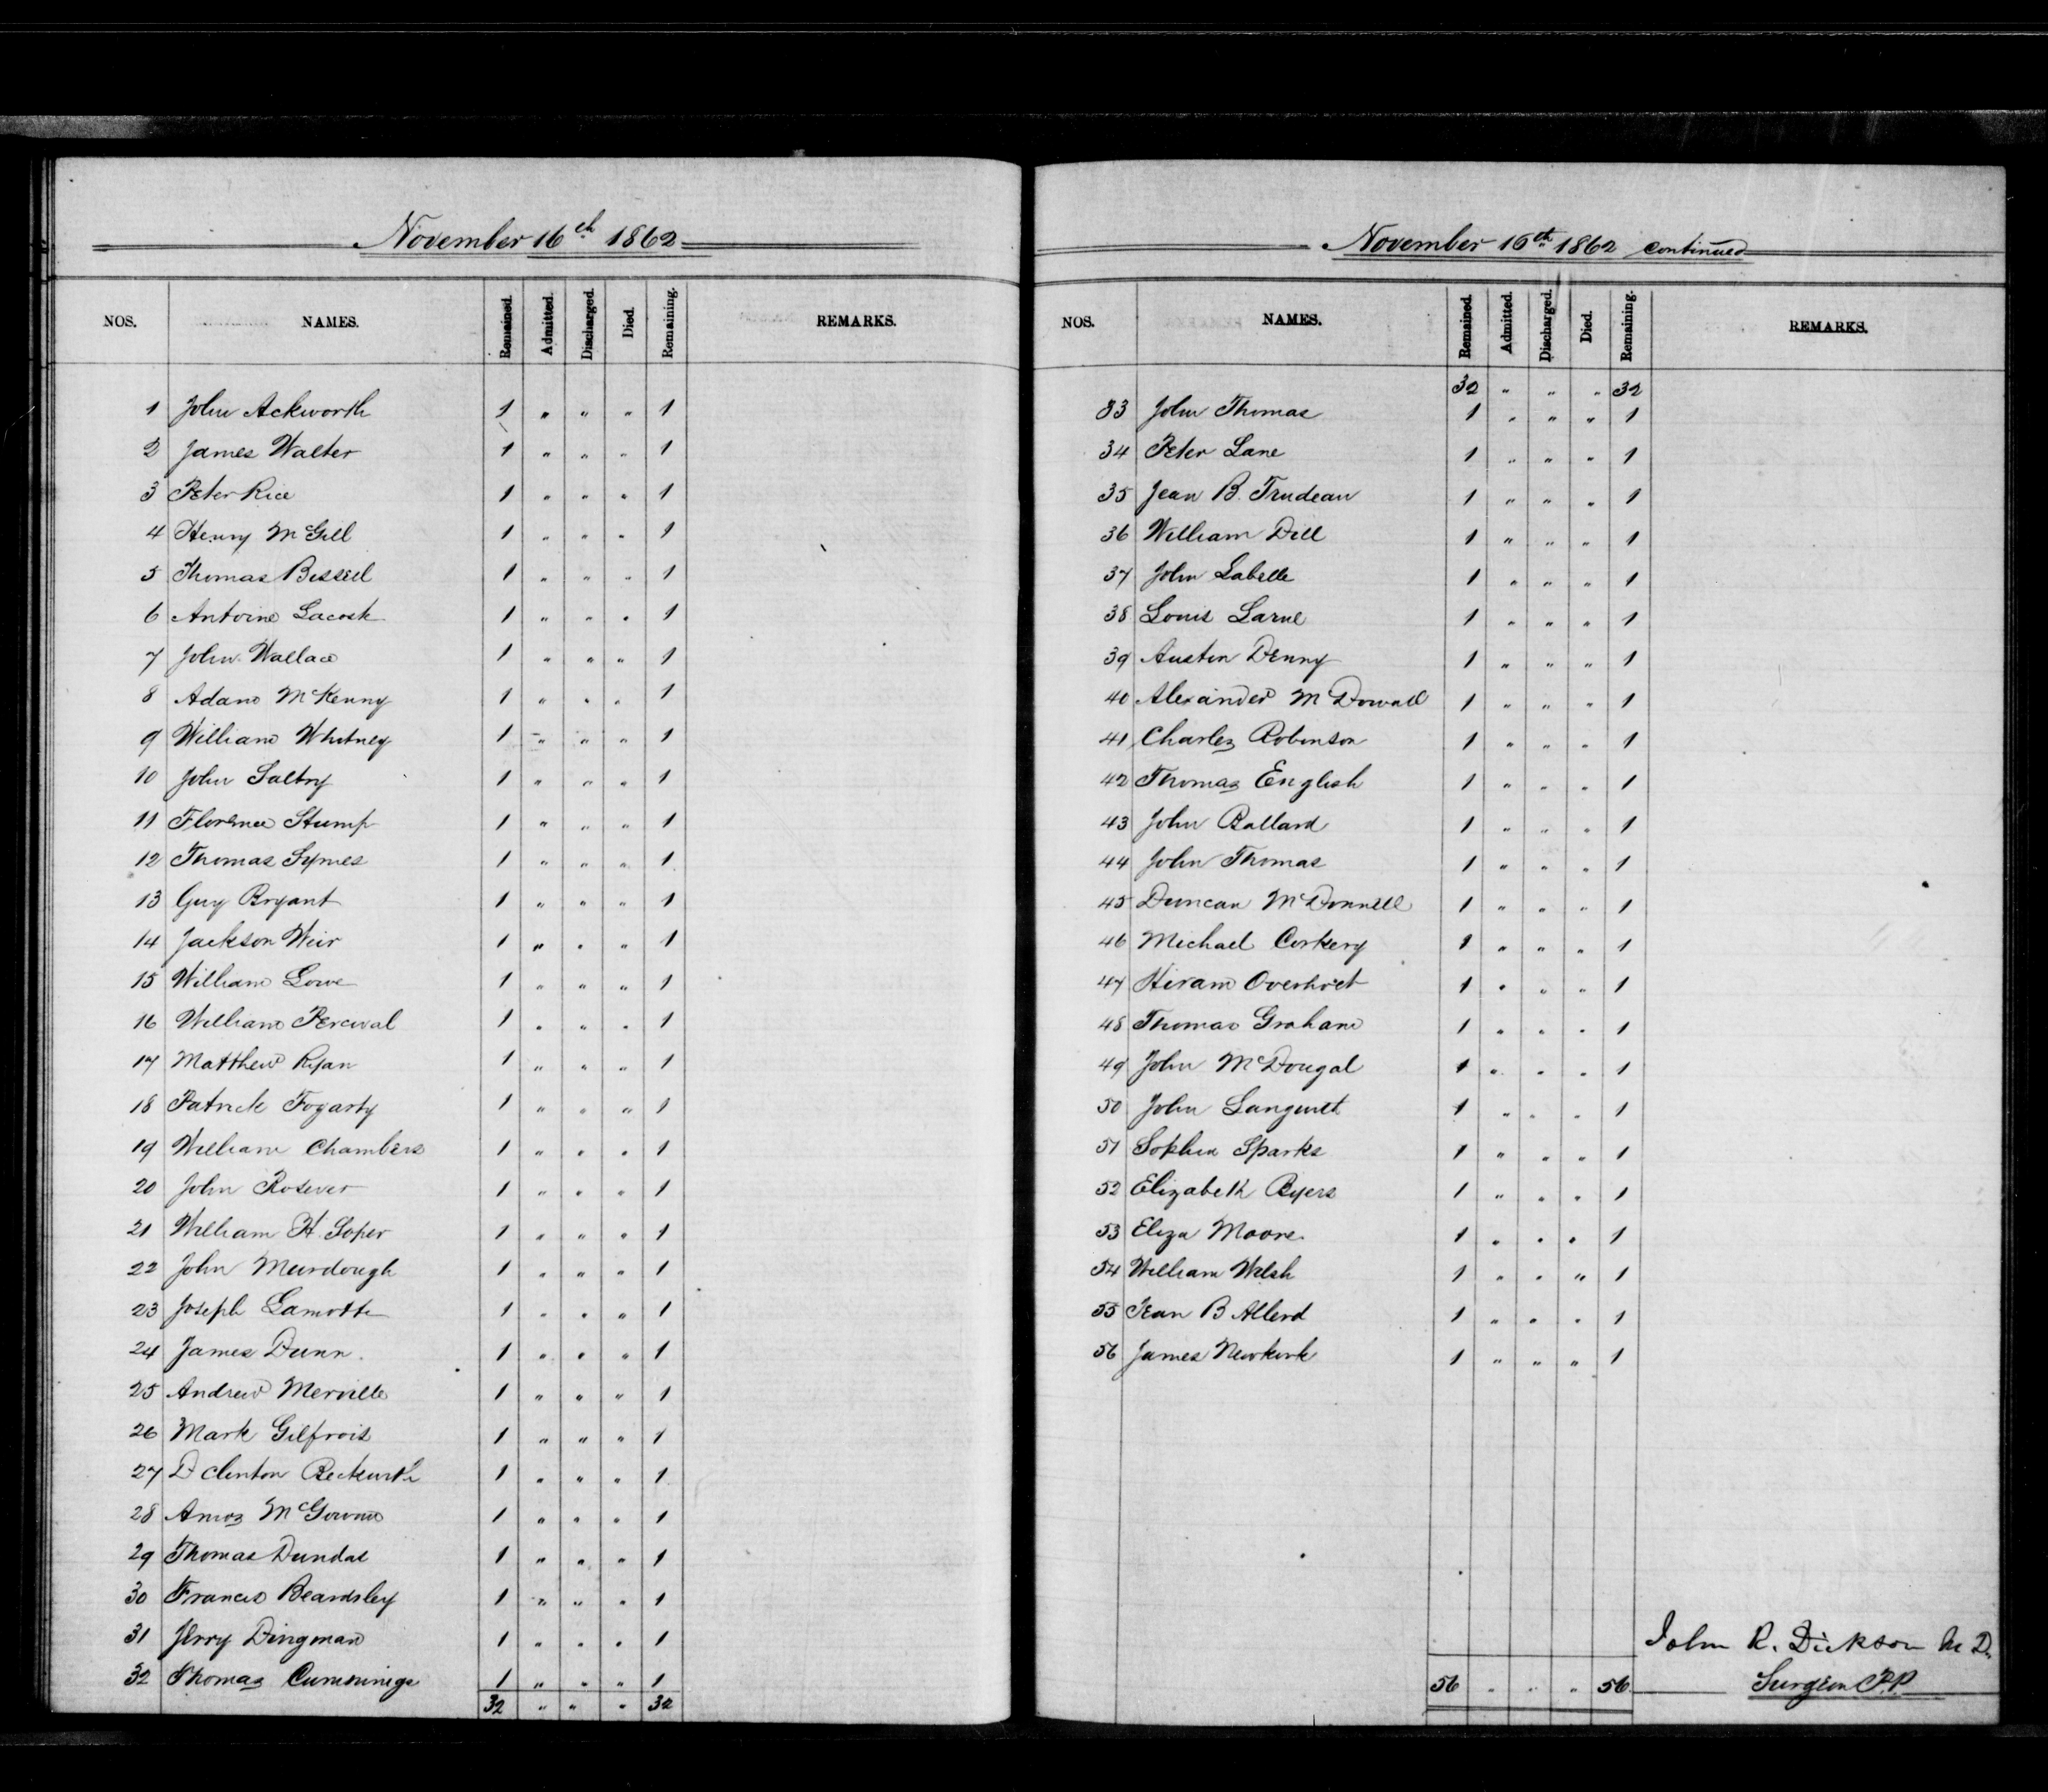 November 16th 1862
NOS. NAMES. Remained. Admitted. Discharged. Died. Remaining. REMARKS.
1 John Ackworth 1 " " " 1
2 James Walter 1 " " " 1
3 Peter Rice 1 " " " 1
4 Henry McGill 1 " " " 1
5 Thomas Bissell 1 " " " 1
6 Antoine Lacosk 1 " " " 1
7 John Wallace 1 " " " 1
8 Adam McKenny 1 " " " 1
9 William Whitney 1 " " " 1
10 John Saltry 1 " " " 1
11 Florence Stump 1 " " " 1
12 Thomas Symes 1 " " " 1
13 Guy Bryant 1 " " " 1
14 Jackson Weir 1 " " " 1
15 William Lowe 1 " " " 1
16 William Percival 1 " " " 1
17 Matthew Ryan 1 " " " 1
18 Patrick Fogarty 1 " " " 1
19 William Chambers 1 " " " 1
20 John Rosever 1 " " " 1
21 William H. Soper 1 " " " 1
22 John Murdough 1 " " " 1
23 Joseph Lamotte 1 " " " 1
24 James Dunn. 1 " " " 1
25 Andrew Merville 1 " " " 1
26 Mark Gilfrois 1 " " " 1
27 D Clinton 1 " " " 1
28 Amos 1 " " " 1
29 Thomas Dundas 1 " " " 1
30 Francis Beardsley 1 " " " 1
31 Jerry Dingman 1 " " " 1
32 Thomas Cummings 1 " " " 1
32 " " " 32
November 16th 1862 continued
NOS. NAMES. Remained. Admitted. Discharged. Died. Remaining. REMARKS.
32 " " " 32
33 John Thomas 1 " " " 1
34 Peter Lane 1 " " " 1
35 Jean B. Trudeau 1 " " " 1
36 William Dill 1 " " " 1
37 John Labelle 1 " " " 1
38 Louis Larue 1 " " " 1
39 Austin Denny 1 " " " 1
40 Alexander McDowall 1 " " " 1
41 Charles Robinson 1 " " " 1
42 Thomas English 1 " " " 1
43 John Ballard 1 " " " 1
44 John Thomas 1 " " " 1
45 Duncan McDonnell 1 " " " 1
46 Michael Corkery 1 " " " 1
47 Hiram Overholt 1 " " " 1
48 Thomas Graham 1 " " " 1
49 John McDougal 1 " " " 1
50 John 1 " " " 1
51 Sophia Sparks 1 " " " 1
52 Elizabeth Byers 1 " " " 1
53 Eliza Moore 1 " " " 1
54 William Welsh 1 " " " 1
55 Jean B Allerd 1 " " " 1
56 James Newkirk 1 " " " 1
John R. Dickson M D.
56 " " " 56 Surgeon P.P.